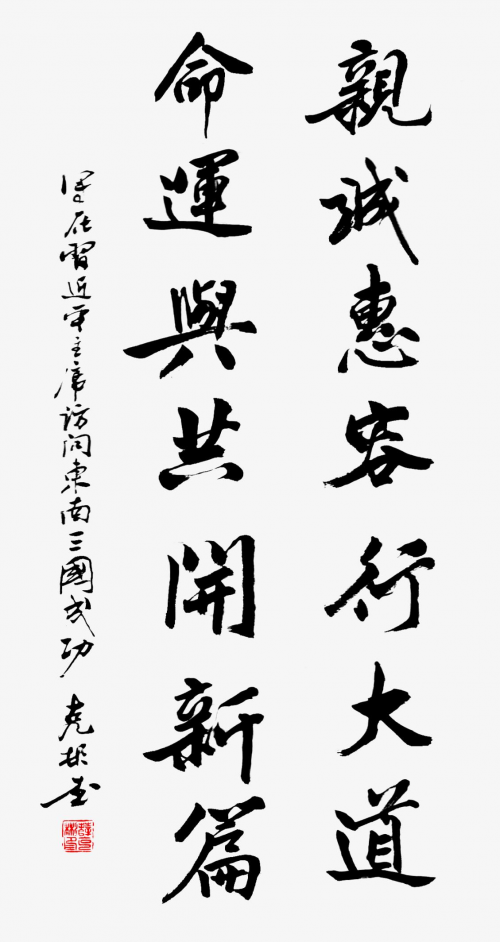 親誠惠容行大道
命運與共開新篇
在習近平主席訪問東南三國成功
書